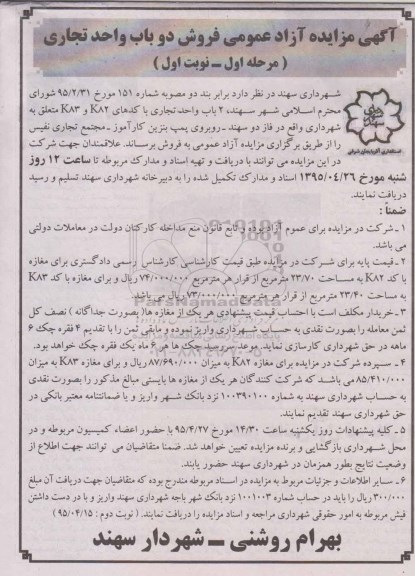 آگهی مزایده آزاد عمومی فروش دو باب واحد تجاری
( مرحله اول ــ نوبت اول )
شهرداری سهند در نظر دارد برابر بند دو مصوبه شماره ۱۵۱ مورخ ۹۵/۲/۳۱ شورای
محترم اسلامی شهر سهند، ۲ باب واحد تجاری با کدهای K۸۲ و K۸۳ متعلق به
شهرداری واقع در فاز دو سهند ـ روبروی پمپ بنزین کارآموز ـ مجتمع تجاری نفیس
را از طریق برگزاری مزایده آزاد عمومی به فروش برساند. علاقمندان جهت شرکت
در این مزایده می توانند با دریافت و تهیه اسناد و مدارک مربوطه تا ساعت ۱۲ روز
شنبه مورخ ۱۳۹۵/۰۴/۲۶ اسناد و مدارک تکمیل شده را به دبیرخانه شهرداری سهند تسلیم و رسید
دریافت نمایند.
ضمناً :
۱ ـ شرکت در مزایده برای عموم آزاد بوده و تابع قانون منع مداخله کارکنان دولت در معاملات دولتی
می باشد.
۲ ـ قیمت پایه برای شرکت در مزایده طبق قیمت کارشناسی کارشناس رسمی دادگستری برای مغازه
با کد K۸۲ به مساحت ۲۳/۷۰ مترمربع از قرار هر مترمربع ۷۴/۰۰۰/۰۰۰ ریال و برای مغازه با کد K۸۳
به مساحت ۲۳/۴۰ مترمربع از قرار هر مترمربع ۷۳/۰۰۰/۰۰۰ ریال می باشد.
۳ ـ خریدار مکلف است با احتساب قیمت پیشنهادی هر یک از مغازه ها( بصورت جداگانه ) نصف کل
ثمن معامله را بصورت نقدی به حساب شهرداری واریز نموده و مابقی ثمن را با تقدیم ۴ فقره چک ۶
ماهه در حق شهرداری کارسازی نماید. موعد سررسید چک ها هر ۶ ماه یک فقره چک خواهد بود.
۴ ـ سپرده شرکت در مزایده برای مغازه K۸۲ به میزان ۸۷/۶۹۰/۰۰۰ ریال و برای مغازه K۸۳ به میزان
۸۵/۴۱۰/۰۰۰ می باشد که شرکت کنندگان هر یک از مغازه ها بایستی مبالغ مذکور را بصورت نقدی
به حساب شهرداری سهند به شماره ۱۰۰۳۹۰۱۰۰ نزد بانک شهر واریز و یا ضمانتنامه معتبر بانکی در
حق شهرداری سهند تقدیم نمایند.
۵ ـ کلیه پیشنهادات روز یکشنبه ساعت ۱۴/۳۰ مورخ ۹۵/۴/۲۷ با حضور اعضاء کمیسیون مربوطه و در
محل شهرداری بازگشایی و برنده مزایده تعیین خواهد شد. ضمنا متقاضیان می توانند جهت اطلاع از
وضعیت نتایج بطور همزمان در شهرداری سهند حضور یابند.
۶ ـ سایر اطلاعات و جزئیات مربوط به مزایده در اسناد مربوطه مندرج بوده که متقاضیان جهت دریافت آن مبلغ
۳۰۰/۰۰۰ ریال را باید در حساب شماره ۱۰۰۱۰۰۳ نزد بانک شهر باجه شهرداری سهند واریز و با در دست داشتن
فیش مربوطه به امور حقوقی شهرداری مراجعه و اسناد مزایده را دریافت نمایند. ( نوبت دوم : ۹۵/۰۴/۱۵ )
بهرام روشنی ــ شهردار سهند